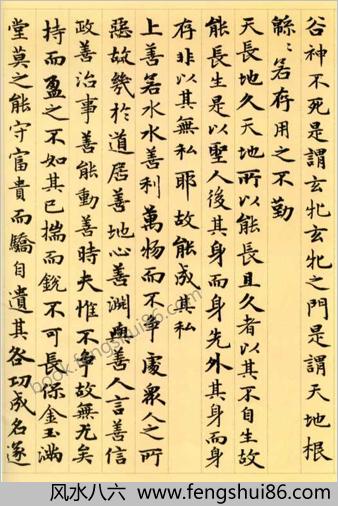 谷神不死是謂玄牝玄牝之門是謂天地根
緜〻若存用之不勤
天長地久天地所以能長且久者以其不自生故
能長生是以聖人後其身而身先外其身而身
存非以其無私耶故能成其私
上善若水水善利萬物而不爭處眾人之所
惡故幾於道居善地心善淵與善人言善信
政善治事善能動善時夫惟不爭故無尤矣
持而盈之不如其已揣而銳不可長保金玉滿
堂莫之能守富貴而驕自遺其咎功成名遂
book.fengshui86.com
风水八六 - www.fengshui86.com